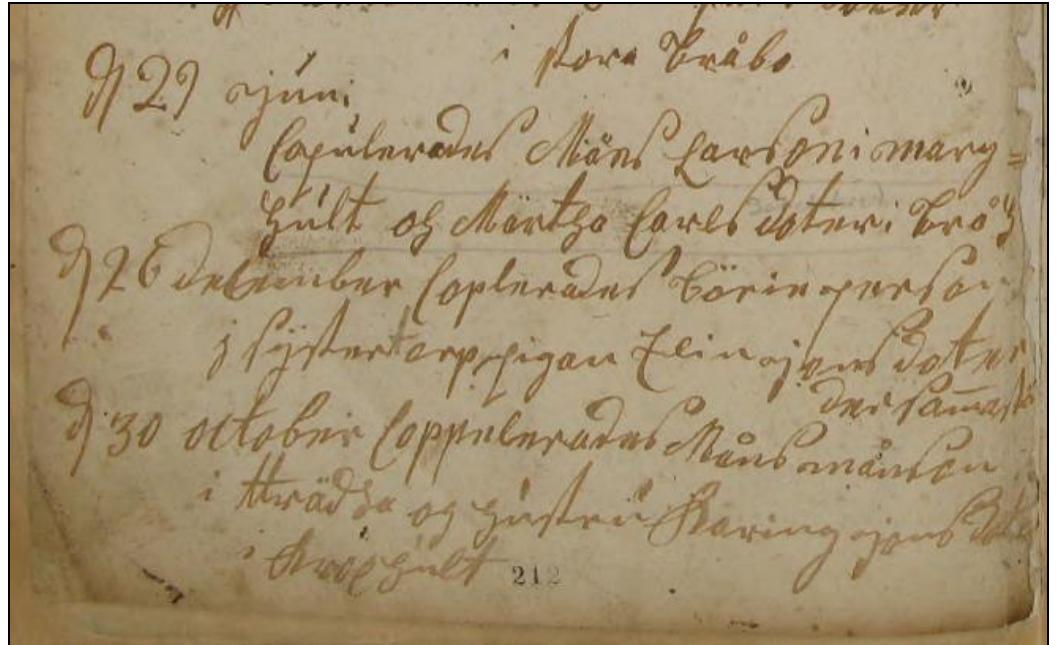 i stora Bråbo
d 29 juni
Copulerades Måns Larson i marg=
hult och Märtha Carls doter i Brå
d 26 december Coplerades Börie person
j systertorp pigan Elin jons doter
dersamastä
d 30 october Coppelerades Måns månson
i tträdda og hustru Karing jons
i Krophult
212